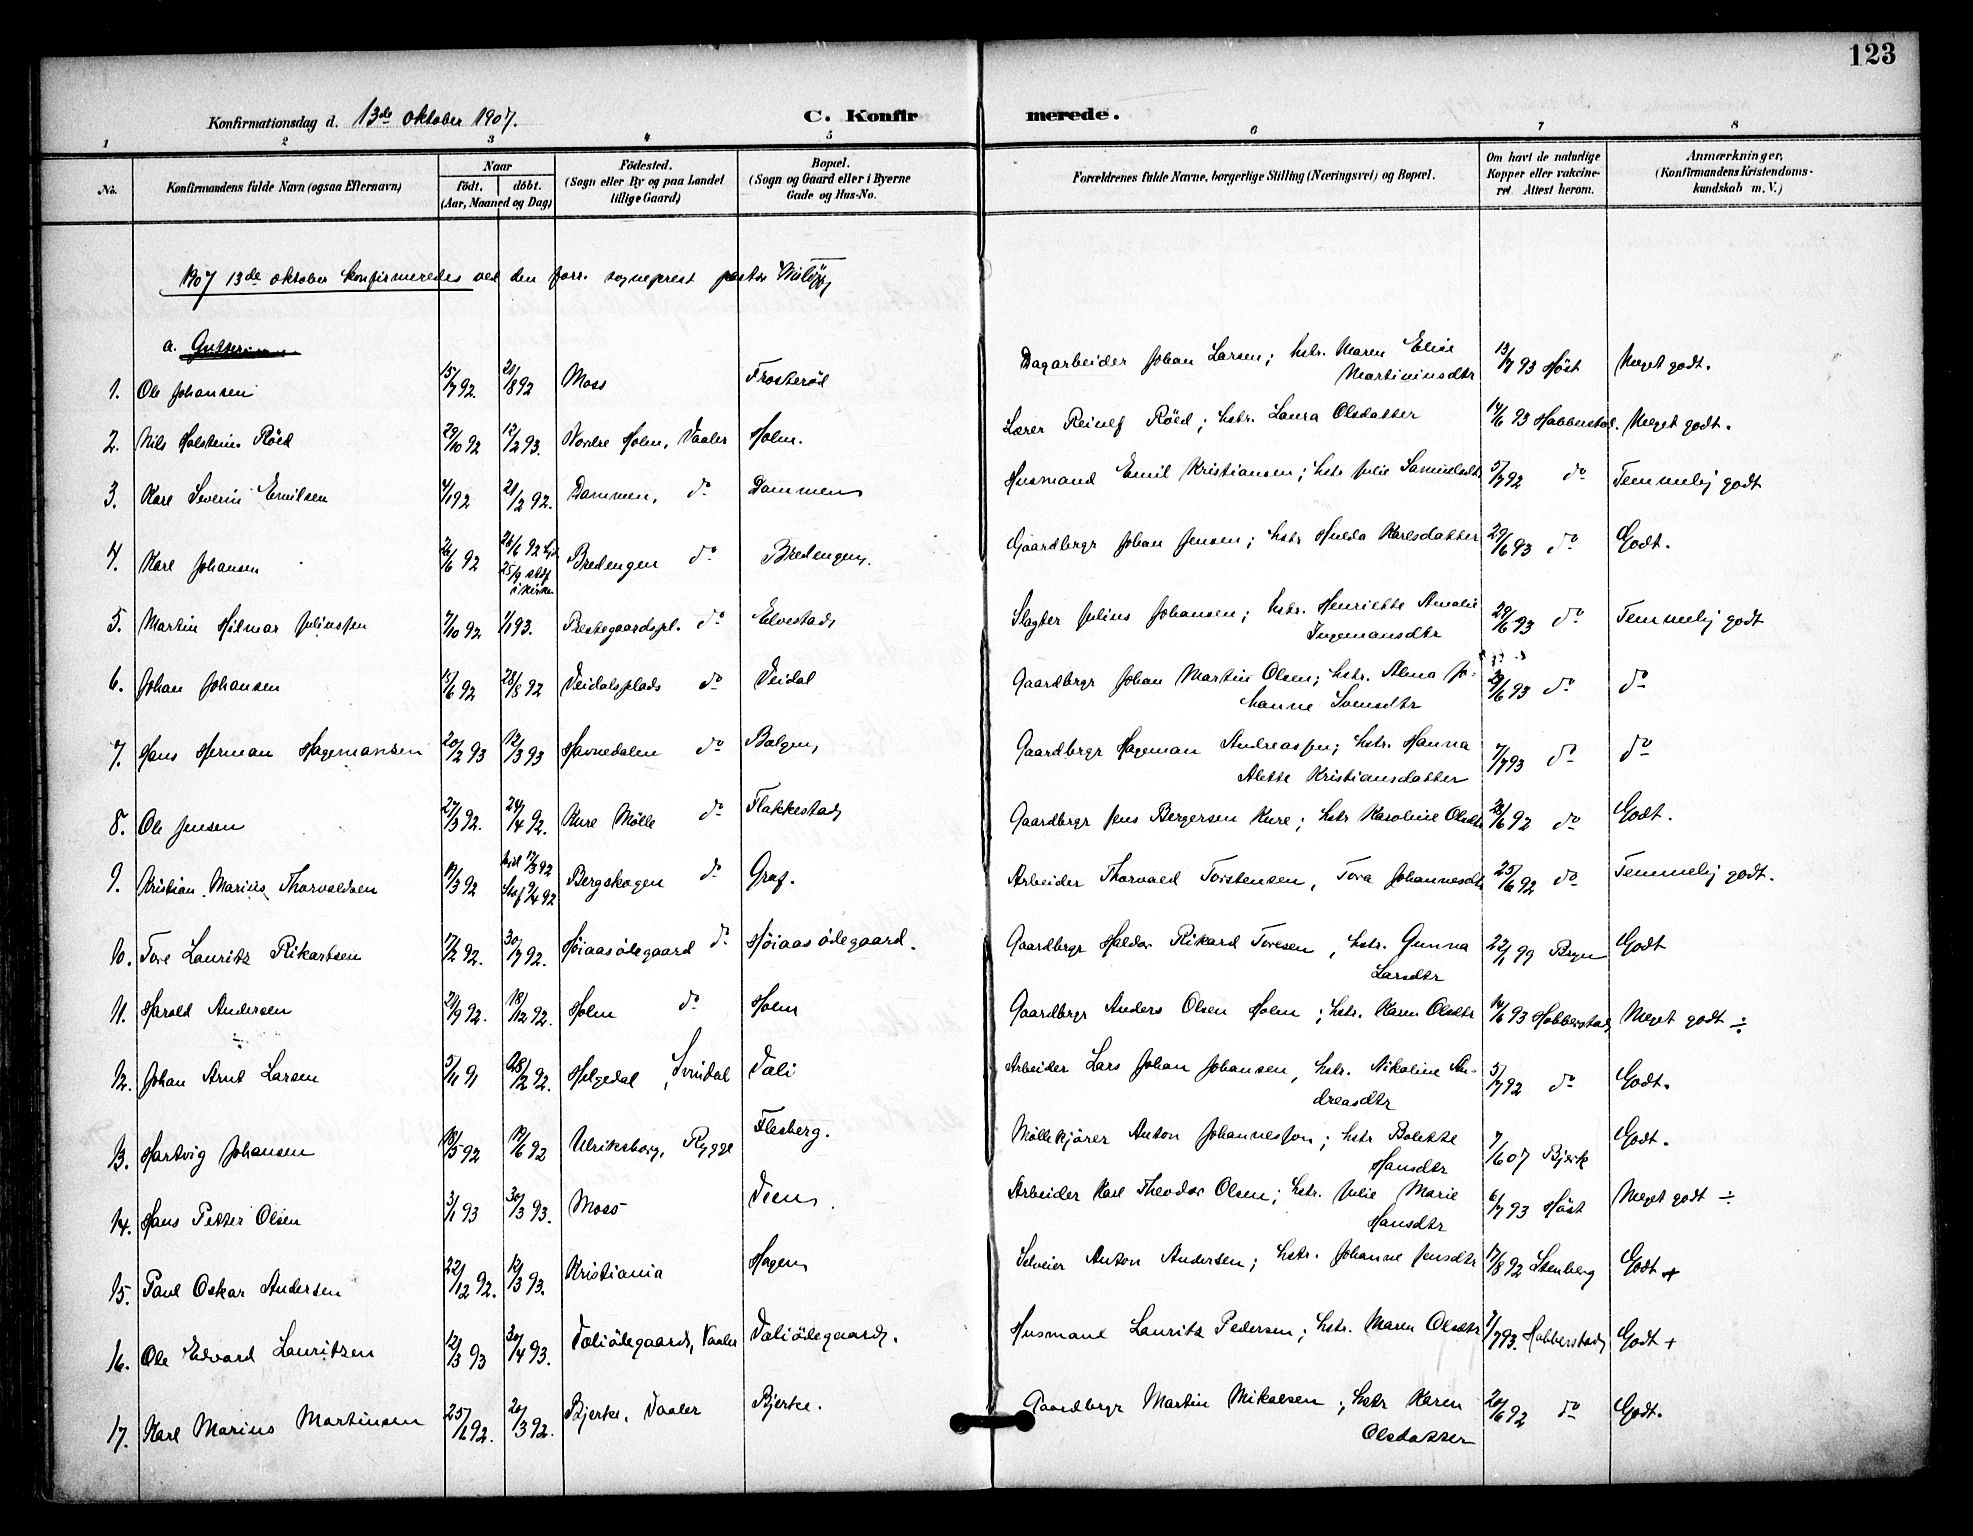 123
Konfirmationsdag d. 13de oktober 1907. C. Konfirmerede.
1 2 3 4 5 6 7 8
No. Konfirmandens fulde Navn (ogsaa Efternavn) Naar födt. döbt. (Aar, Maaned og Dag) Födested. (Sogn eller By og paa Landet tillige Gaard) Bopæl. (Sogn og Gaard eller i Byerne Gade og Hus-No. Forældrenes fulde Navne, borgerlige Stilling (Næringsvei) og Bopæl. Om havt de naturlige Kopper eller vakcineret. Attest herom. Anmærkninger, (Konfirmandens Kristendomskundskab m. V.)
1907 13de oktober konfirmeredes ved den forr. sogneprest pastor
a. Gutterne
1. Ole Johansen 15/7 92. 21/8 92 Moss Frosteröd Dagarbeider Johan Larsen; hstr. Maren Elise Martiniusdtr 13/7 93 Höst Meget godt.
2. Nils Holstein Röed 29/10 92 12/2 93. Nordre Holm, Vaaler Holm. Lærer Reinlf Röed; hstr. Laura Olsdatter 14/6 93 Hobberstad. Meget godt.
3. Karl Severin Emilsen 4/1 92 21/2 92. Dammen, do Dammen Husmand Emil Kristiansen; hstr Julie Samuelsdtr 5/7 92 do Temmelig godt
4. Karl Johansen 2/6 92 25/9 i kirken Bredengen do Bredengen. Gaardbrgr Johan Jensen; hstr Hulda Karlsdatter 29/6 93 do Godt.
5. Martin Hilmar Juliussen 7/10 92 1/1 93. Prestegaardspl. do Elvestad Slagter Julius Johansen; hstr. Henriette Amalie Ingemansdtr 29/6 93 do Temmelig godt
6. Johan Johansen 15/6 92 28/8 92 Veidalsplads do Veidal Gaardbrgr Johan Martin Olsen; hstr. Alma Johanne Svensdtr 29/6 93 do do
7. Hans Herman Hagemansen 20/2 93 12/3 93 Havnedalen do Bolgen Gaardbrgr Hageman Andreassen; hstr. Hanna Alette Kristiansdatter 7/7 93 do do
8. Ole Jensen 27/3 92. 24/4 92. Kure Mölle do Flakkestad Gaardbrgr Jens Bergersen Kure; hstr Karoline Olsdtr 28/6 92 do Godt.
9. Kristian Marius Thorvaldsen 12/3 92 Bergskogen do Graf. Arbeider Thorvald Torstensen, Tora Johannesdtr 25/6 92 do Temmelig godt.
10. Tore Lauritz Rikartsen 17/2 92. 30/7 92. Höiaasödegaard do Höiaasödegaard. Gaardbrgr Haldor Rikard Toresen, hstr. Gunna Larsdtr 22/1 99 Bryn Godt
11. Harald Andersen 21/9 92. 18/12 92. Holm do Holm Gaardbrgr Anders Olsen Holm; hstr. Karen Olsdtr 14/6 93 Hobberstad Meget godt ÷
12. Johan Arnt Larsen 5/11 91 28/2 92. Helgedal, Svindal Væli Arbeider Lars Johan Johansen, hstr. Nikoline Andreasdtr 5/7 92 do Godt.
13. Hartvig Johansen 18/5 92 12/6 92 Ulriksborg, Rygge Flesberg. Möllekjörer Anton Johannessen; hstr Bolette Hansdtr 7/6 07 Bjerk Godt.
14. Hans Petter Olsen 3/1 93 30/3 93. Moss Veen Arbeider Karl Theodor Olsen; hstr. Julie Marie Hansdtr 6/7 93 Höst Meget godt ÷
15. Paul Oskar Andersen 22/12 92. 12/3 93. Kristiania Hagen Selveier Anton Andersen; hstr. Johanne Jensdtr 17/8 92 Stenberg Godt +
16. Ole Edvard Lauritzen 12/3 93 30/4 93. Væliödegaard, Vaaler Væliödegaard. Husmand Lauritz Pedersen; hstr. Maren Olsdtr 7/7 93. Hobberstad Godt +
17. Karl Marius Martinsen 25/1 92. 20/3 92. Bjerke, Vaaler Bjerke. Gaardbrgr Martin Mikalsen; hstr Karen Olsdatter 20/6 92 do Godt.